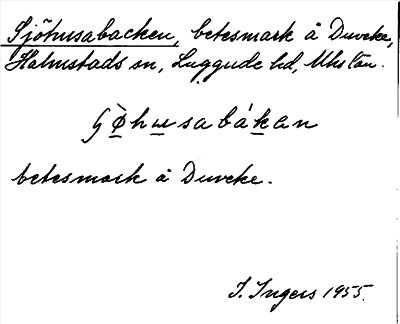 Sjöhusabacken, betesmark å Duveke,
Halmstads sn, Luggude hd, Mhs län.
betesmark å Duveke.
I. Ingers 1955.